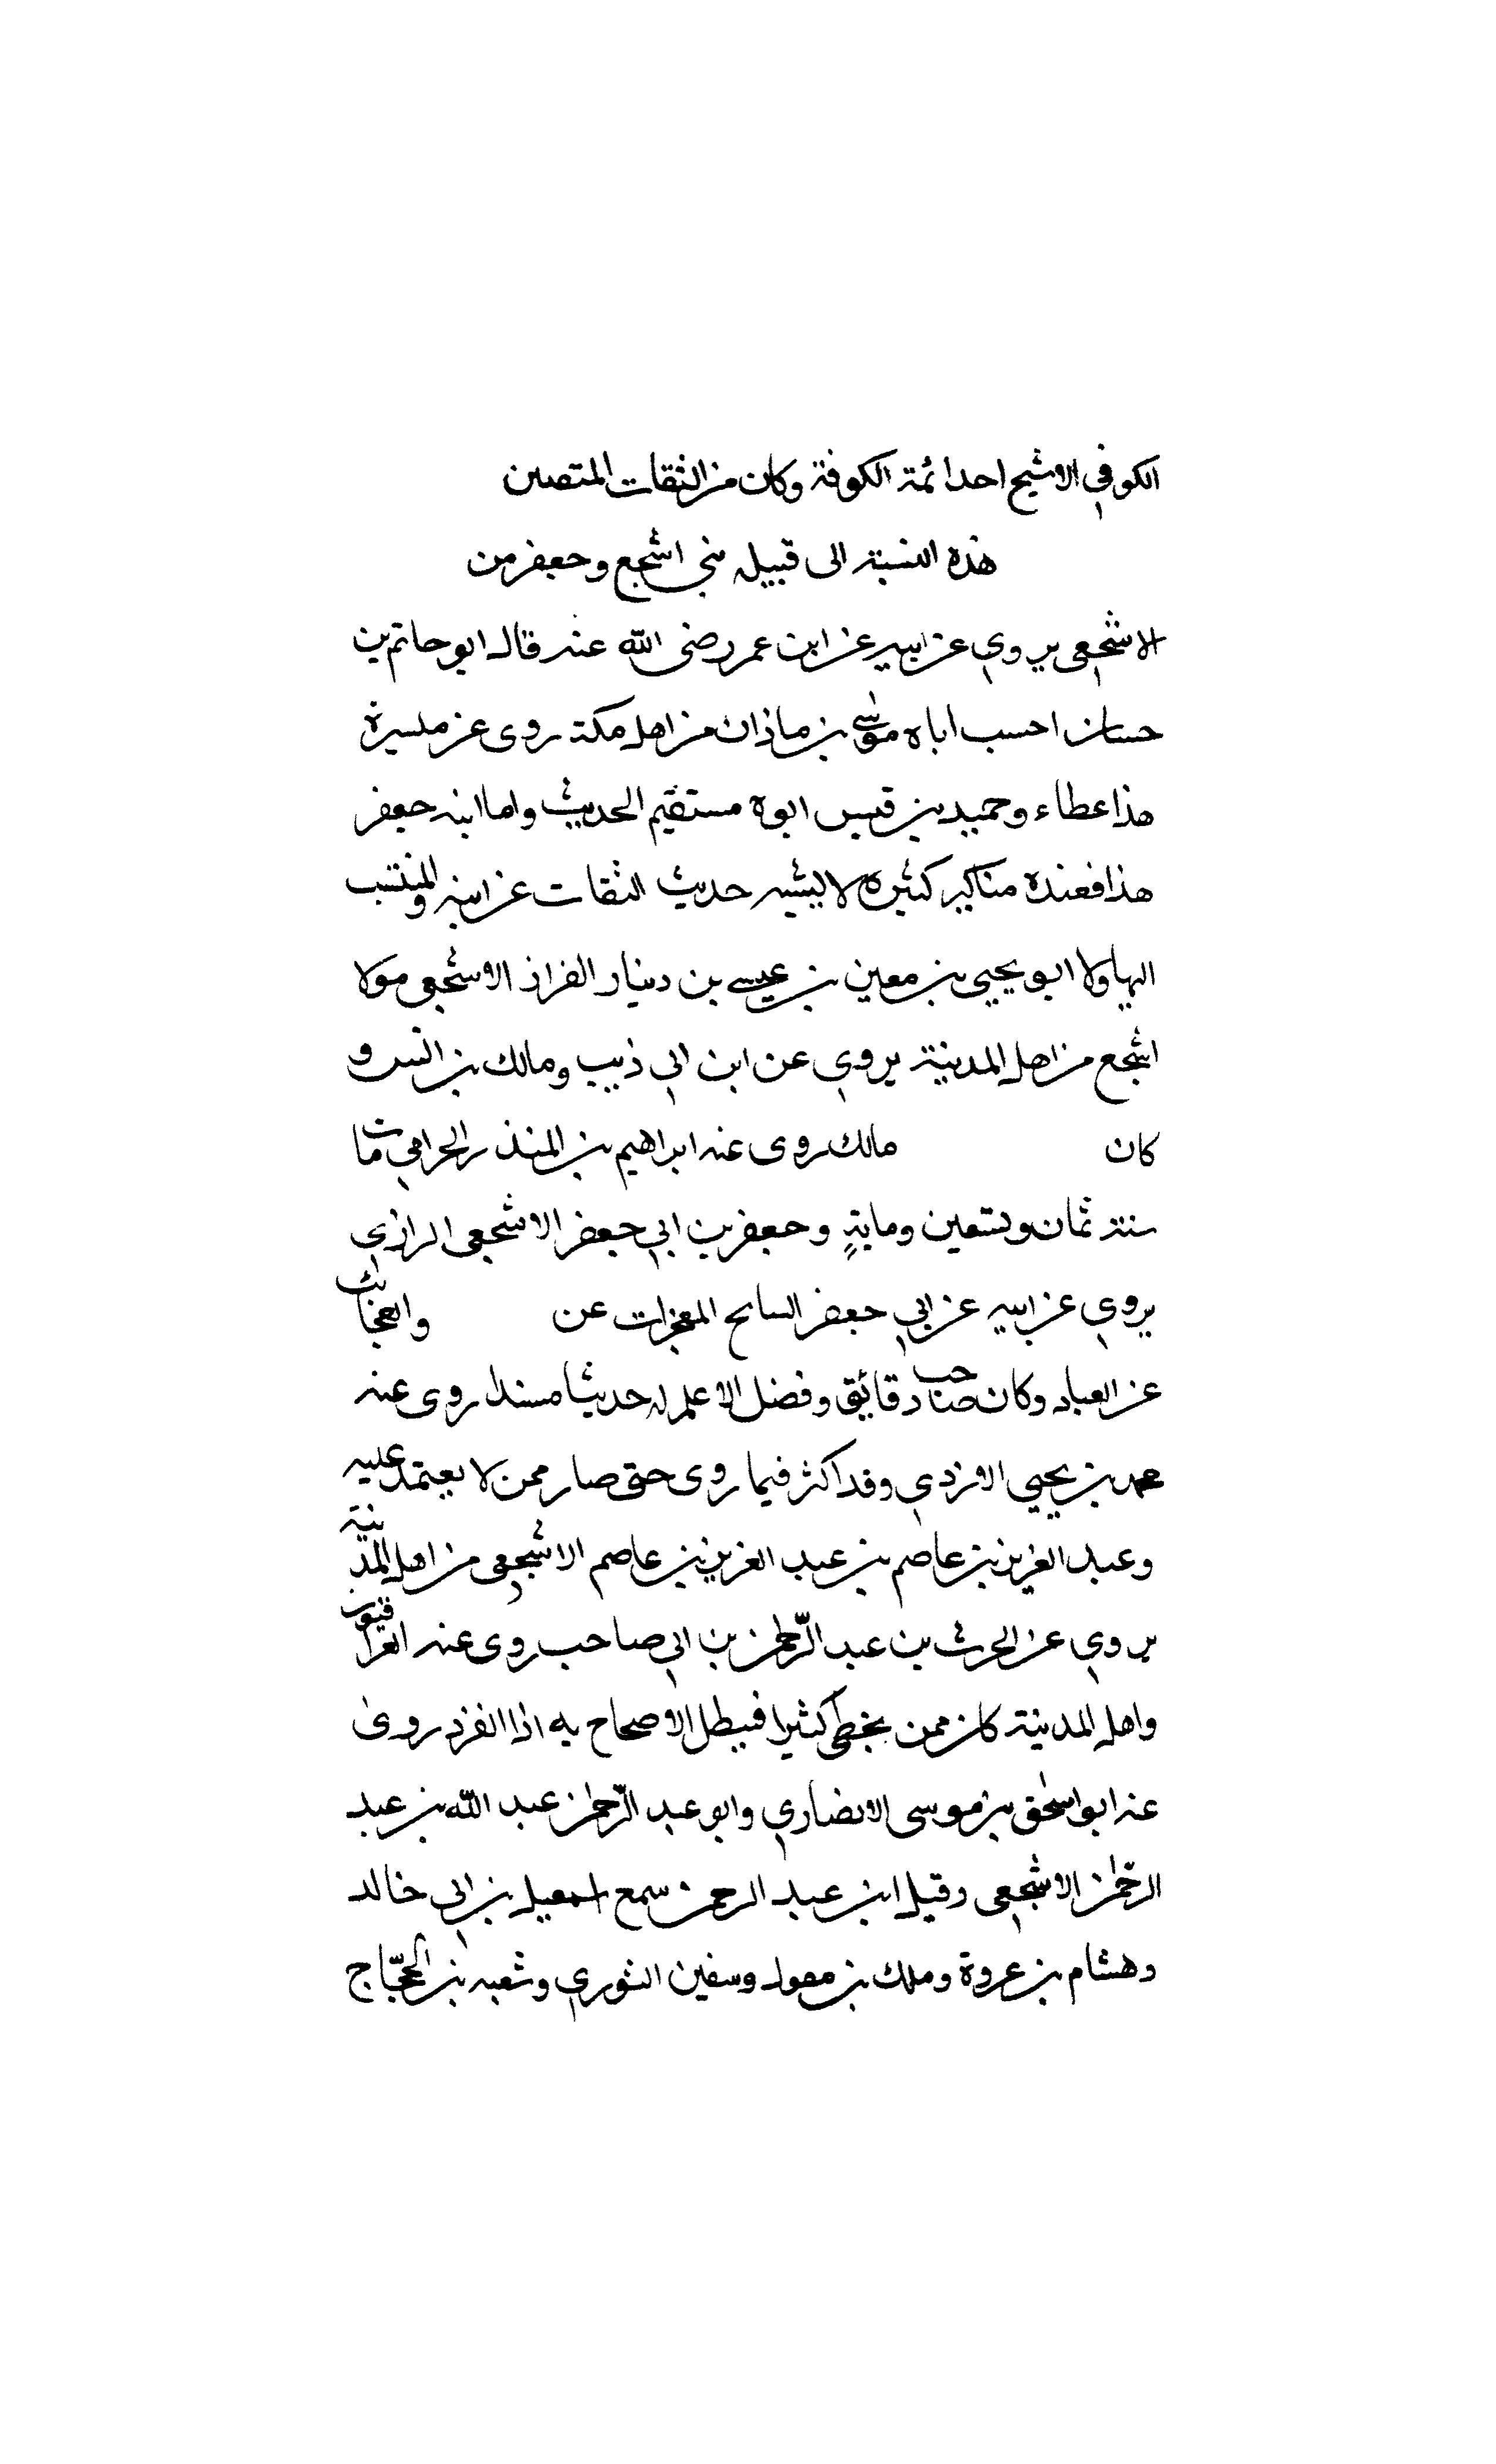 الكوفي الاشيح احد ائمة الكوفة وكان من الثقات المتصين
هذه النسبة الى قبيله بني اشجع وجعفر من
الاشجعي يروي عن ابيه عن ابن عمر رضى الله عنه قال ابو حاتم بن
حسان احسب اباه موسى بن ماذان من اهل مكة روى عن ميسرة
هذا عطاء وحميد بن قيس ابوه مستقيم الحديث واما ابنه جعفر
هذا فعنده مناكير كثيرة لا يشبه حديث الثقات عن ابيه والمنتسب
اليها ولا ابو يحيى بن معين بن عيسى بن دينار الفراز الاشجعي مولا
اشجع من اهل المدينة يروي عن ابن ابي ذيب ومالك بن انس و
كان مالك روى عنه ابراهيم بن المنذر الحرامي مات
سنة ثمان وتسعين ومايةٍ وجعفر بن ابي جعفر الاشجعي الرازي
يروي عن ابيه عن ابي جعفر السايح المعجزات عن والعجائب
عن العباد وكان صاحب دقائق وفضل لا اعلم له حديثا مسندا روى عنه
محمد بن يحيى الازدي وقد اكثر فيما روى حتى صار ممن لا يعتمد عليه
وعبد العزيز بن عاصم بن عبد العزيز بن عاصم الاشجعي من اهل المدينة
يروي عن الحرث بن عبد الرّحمن بن ابي صاحب روى عنه العراقيون
واهل المدينة كان ممن يخطى كثيرا فيبطل الاصحاح به اذا انفرد روى
عنه ابو اسحق بن موسى الانصاري وابو عبد الرّحمن عبد الله بن عبد
الرحّمن الاشجعي وقيل ابن عبد الرحمن سمع اسمعيل بن ابي خالد
وهشام بن عروة وملك بن معول وسفين الثوري وشعبه بن الحجّاج